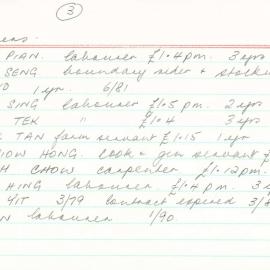 3
PIAN. labourer £1.4 pm. 3 yrs
SENG boundary rider &
1 yr. 6/81
SING labourer £1.5 pm. 2 yrs
TEK " £1.4 3 yrs
TAN farm servant £1.15 1 yr
HONG. cook & gen servant £
CHOW carpenter £1.12pm.
HING labourer. £1.4 pm. 3
YIT 3/79 contract expired 3/8
labourer 1/90.